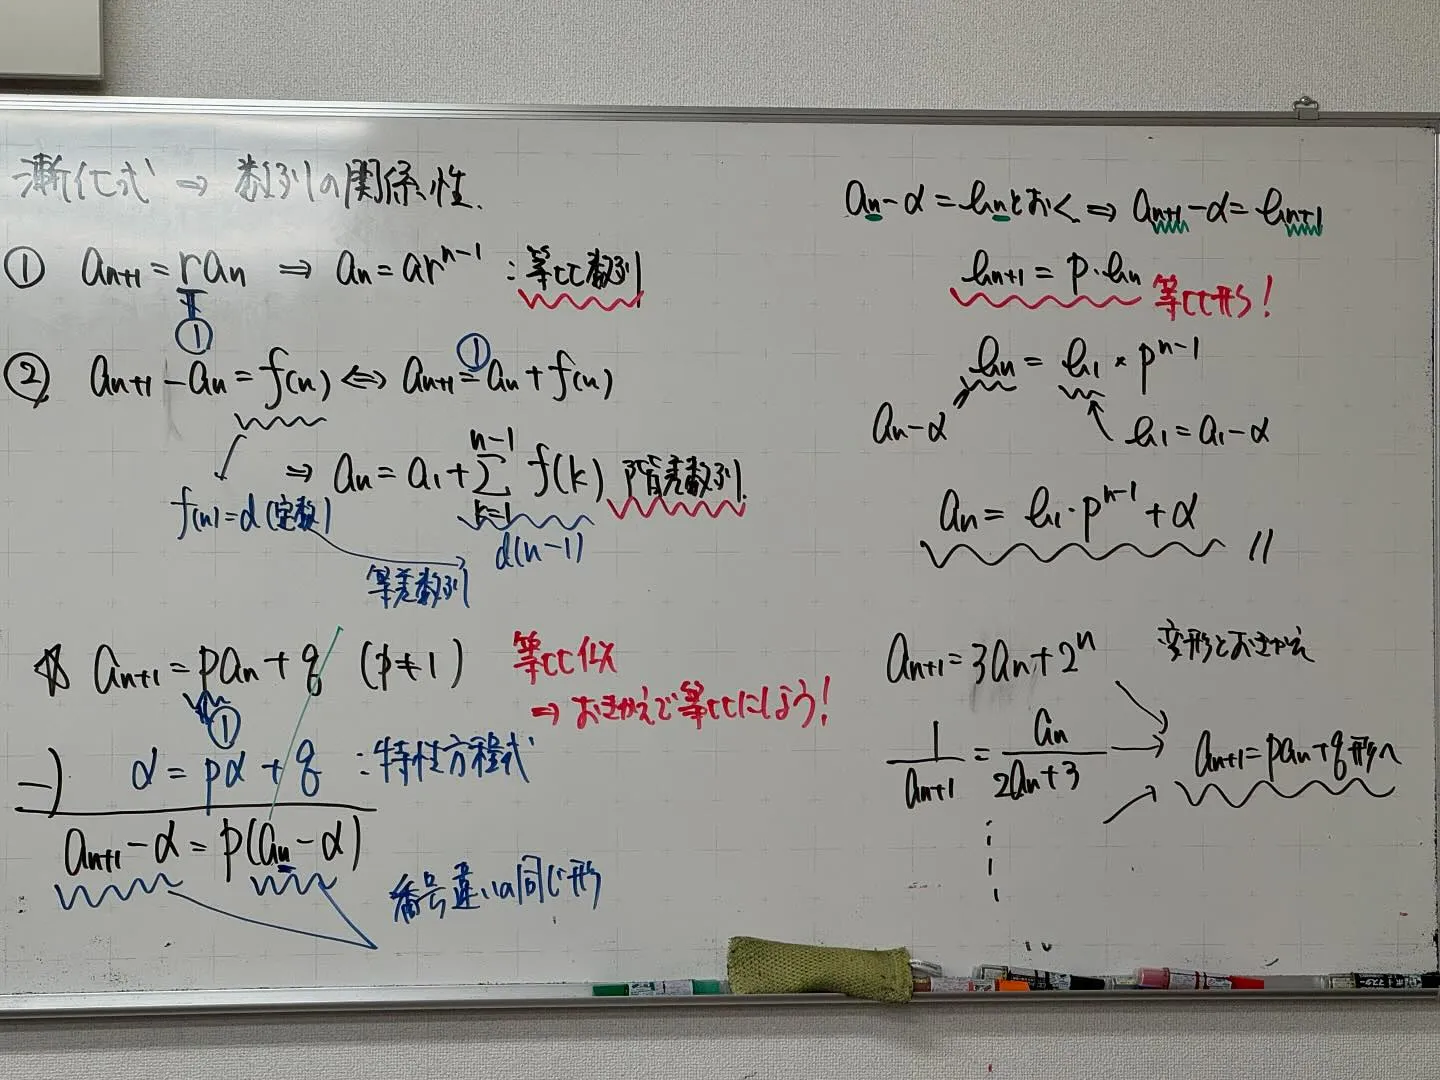 漸化式 ⇒ 数列の関係性.
① an+1 = ran ⇒ an = ar^n-1 : 等比数列
①
② an+1 - an = f(n) ⇔ an+1 = an + f(n)
①
⇒ an = a1 + Σ f(k) 階差数列.
n-1
k=1
f(n)=d(定数)
d(n-1)
等差数列
☆ an+1 = pan + q (p≠1)
等比似
⇒ おきかえで等比にしよう!
①
-) α = pα + q : 特性方程式
an+1 - α = p(an - α)
番号違いの同じ形
an - α = bnとおく ⇒ an+1 - α = bn+1
bn+1 = p・bn 等比形!
bn = b1 × p^n-1
an - α
b1 = a1 - α
an = b1・p^n-1 + α //
an+1 = 3an + 2^n 変形とおきかえ
1/an+1 = an/2an+3 → an+1 = pan + q 形へ